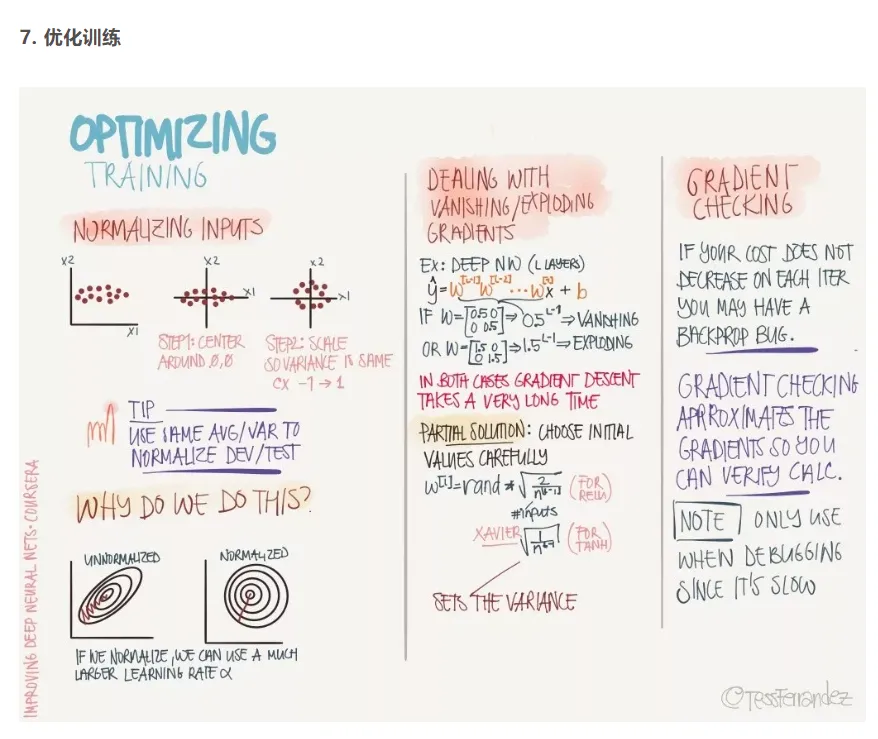 7. 优化训练
OPTIMIZING
TRAINING
NORMALIZING INPUTS
x2
x1
x2
x1
x2
x1
STEP1: CENTER
AROUND 0,0
STEP2: SCALE
SO VARIANCE IS SAME
EX -1 → 1
TIP
USE SAME AVG/VAR TO
NORMALIZE DEV/TEST
WHY DO WE DO THIS?
UNNORMALIZED
NORMALIZED
IF WE NORMALIZE, WE CAN USE A MUCH
LARGER LEARNING RATE α
IMPROVING DEEP NEURAL NETS · COURSERA
DEALING WITH
VANISHING/EXPLODING
GRADIENTS
EX: DEEP NW (L LAYERS)
ŷ = W^[L-1] W^[L-2] ... W^[1] x + b
IF W = [0.5 0; 0 0.5] ⇒ 0.5^L-1 ⇒ VANISHING
OR W = [1.5 0; 0 1.5] ⇒ 1.5^L-1 ⇒ EXPLODING
IN BOTH CASES GRADIENT DESCENT
TAKES A VERY LONG TIME
PARTIAL SOLUTION: CHOOSE INITIAL
VALUES CAREFULLY
W^[l] = rand * √(2/n^[l-1]) (FOR RELU)
#inputs
XAVIER √(1/n^[l-1]) (FOR TANH)
SETS THE VARIANCE
GRADIENT
CHECKING
IF YOUR COST DOES NOT
DECREASE ON EACH ITER
YOU MAY HAVE A
BACKPROP BUG.
GRADIENT CHECKING
APPROXIMATES THE
GRADIENTS SO YOU
CAN VERIFY CALC.
NOTE ONLY USE
WHEN DEBUGGING
SINCE IT'S SLOW
©TessFerrandez